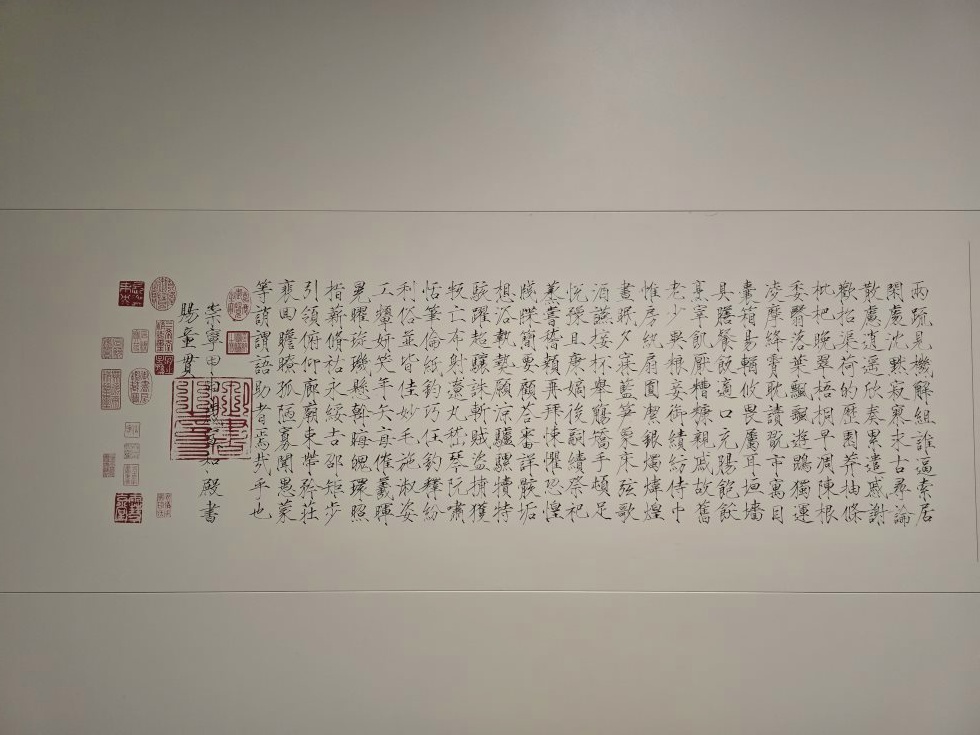 兩疏見機解組誰逼索居
閑處沈默寂寥求古尋論
散慮逍遙欣奏累遣慼謝
歡招渠荷的歷園莽抽條
枇杷晚翠梧桐早凋陳根
委翳落葉飄颻遊鵾獨運
凌摩絳霄耽讀翫市寓目
囊箱易輶攸畏屬耳垣墻
具膳飡飯適口充腸飽飫
烹宰飢厭糟糠親戚故舊
老少異粮妾御績紡侍巾
惟房紈扇圓潔銀燭煒煌
晝眠夕寐藍笋象床弦歌
酒讌接杯舉觴矯手頓足
悅豫且康嫡後嗣續祭祀
蒸嘗稽顙再拜悚懼恐惶
牋牒簡要顧答審詳骸垢
想浴執熱願涼驢騾犢特
駭躍超驤誅斬賊盜捕獲
叛亡布射遼丸嵇琴阮嘯
恬筆倫紙鈞巧任釣釋紛
利俗並皆佳妙毛施淑姿
工顰妍笑年矢每催羲暉
晃曜琁璣懸斡晦魄環照
指薪脩祜永綏吉邵矩步
引領俯仰廊廟束帶矜莊
裵回瞻眺孤陋寡聞愚蒙
等誚謂語助者焉哉乎也
崇寧甲申歲宣和殿書
賜童貫